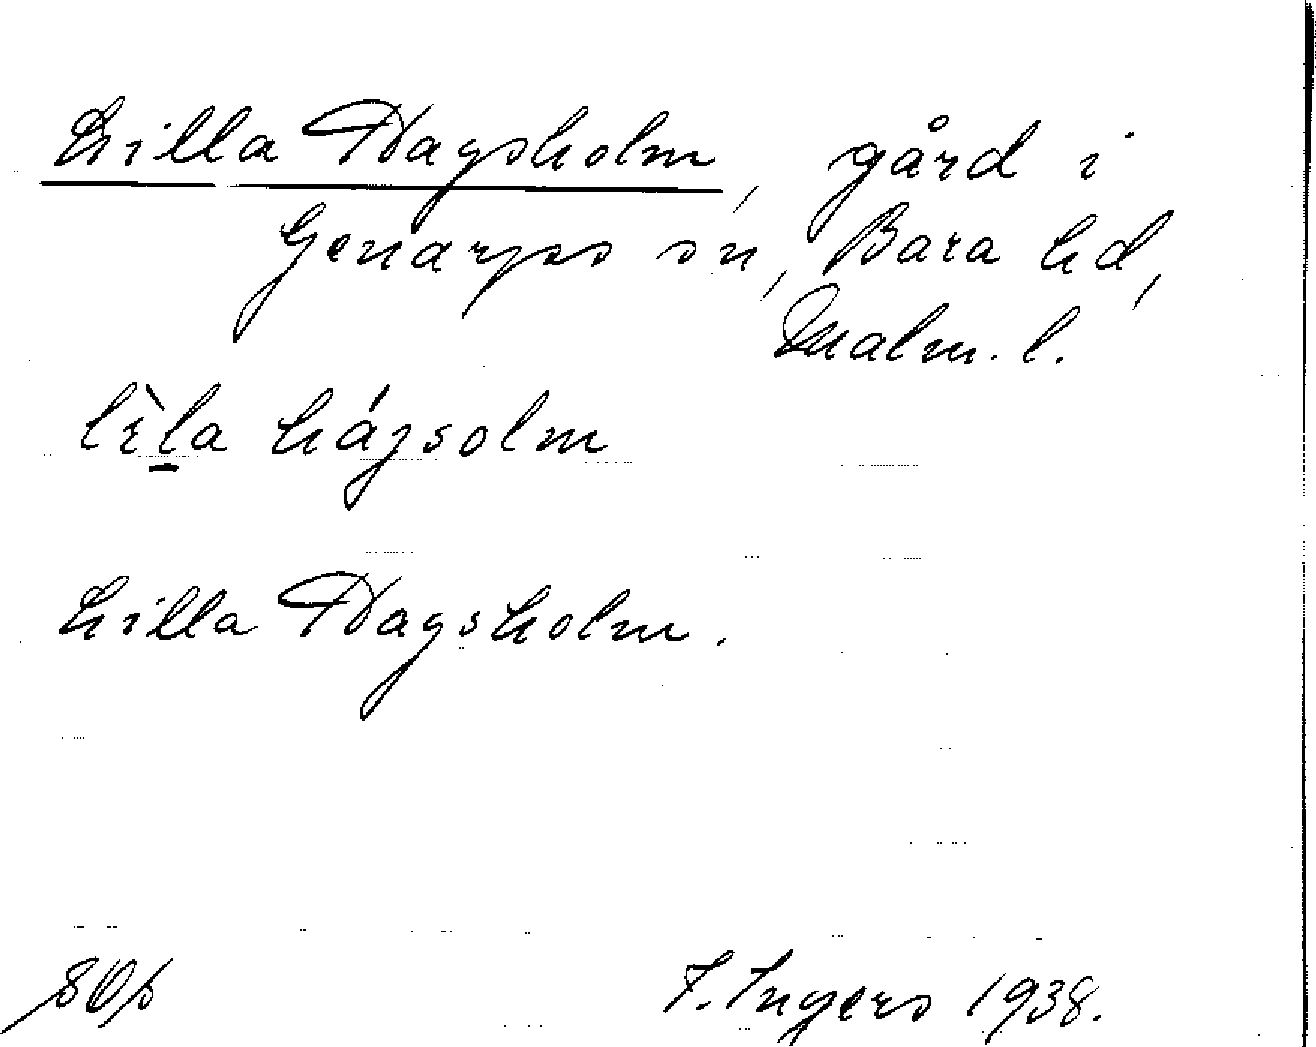 Lilla Hagsholm, gård i
Genarps sn, Bara hd,
Malm. l.
lìla hágsolm
Lilla Hagsholm.
I. Ingers 1938.